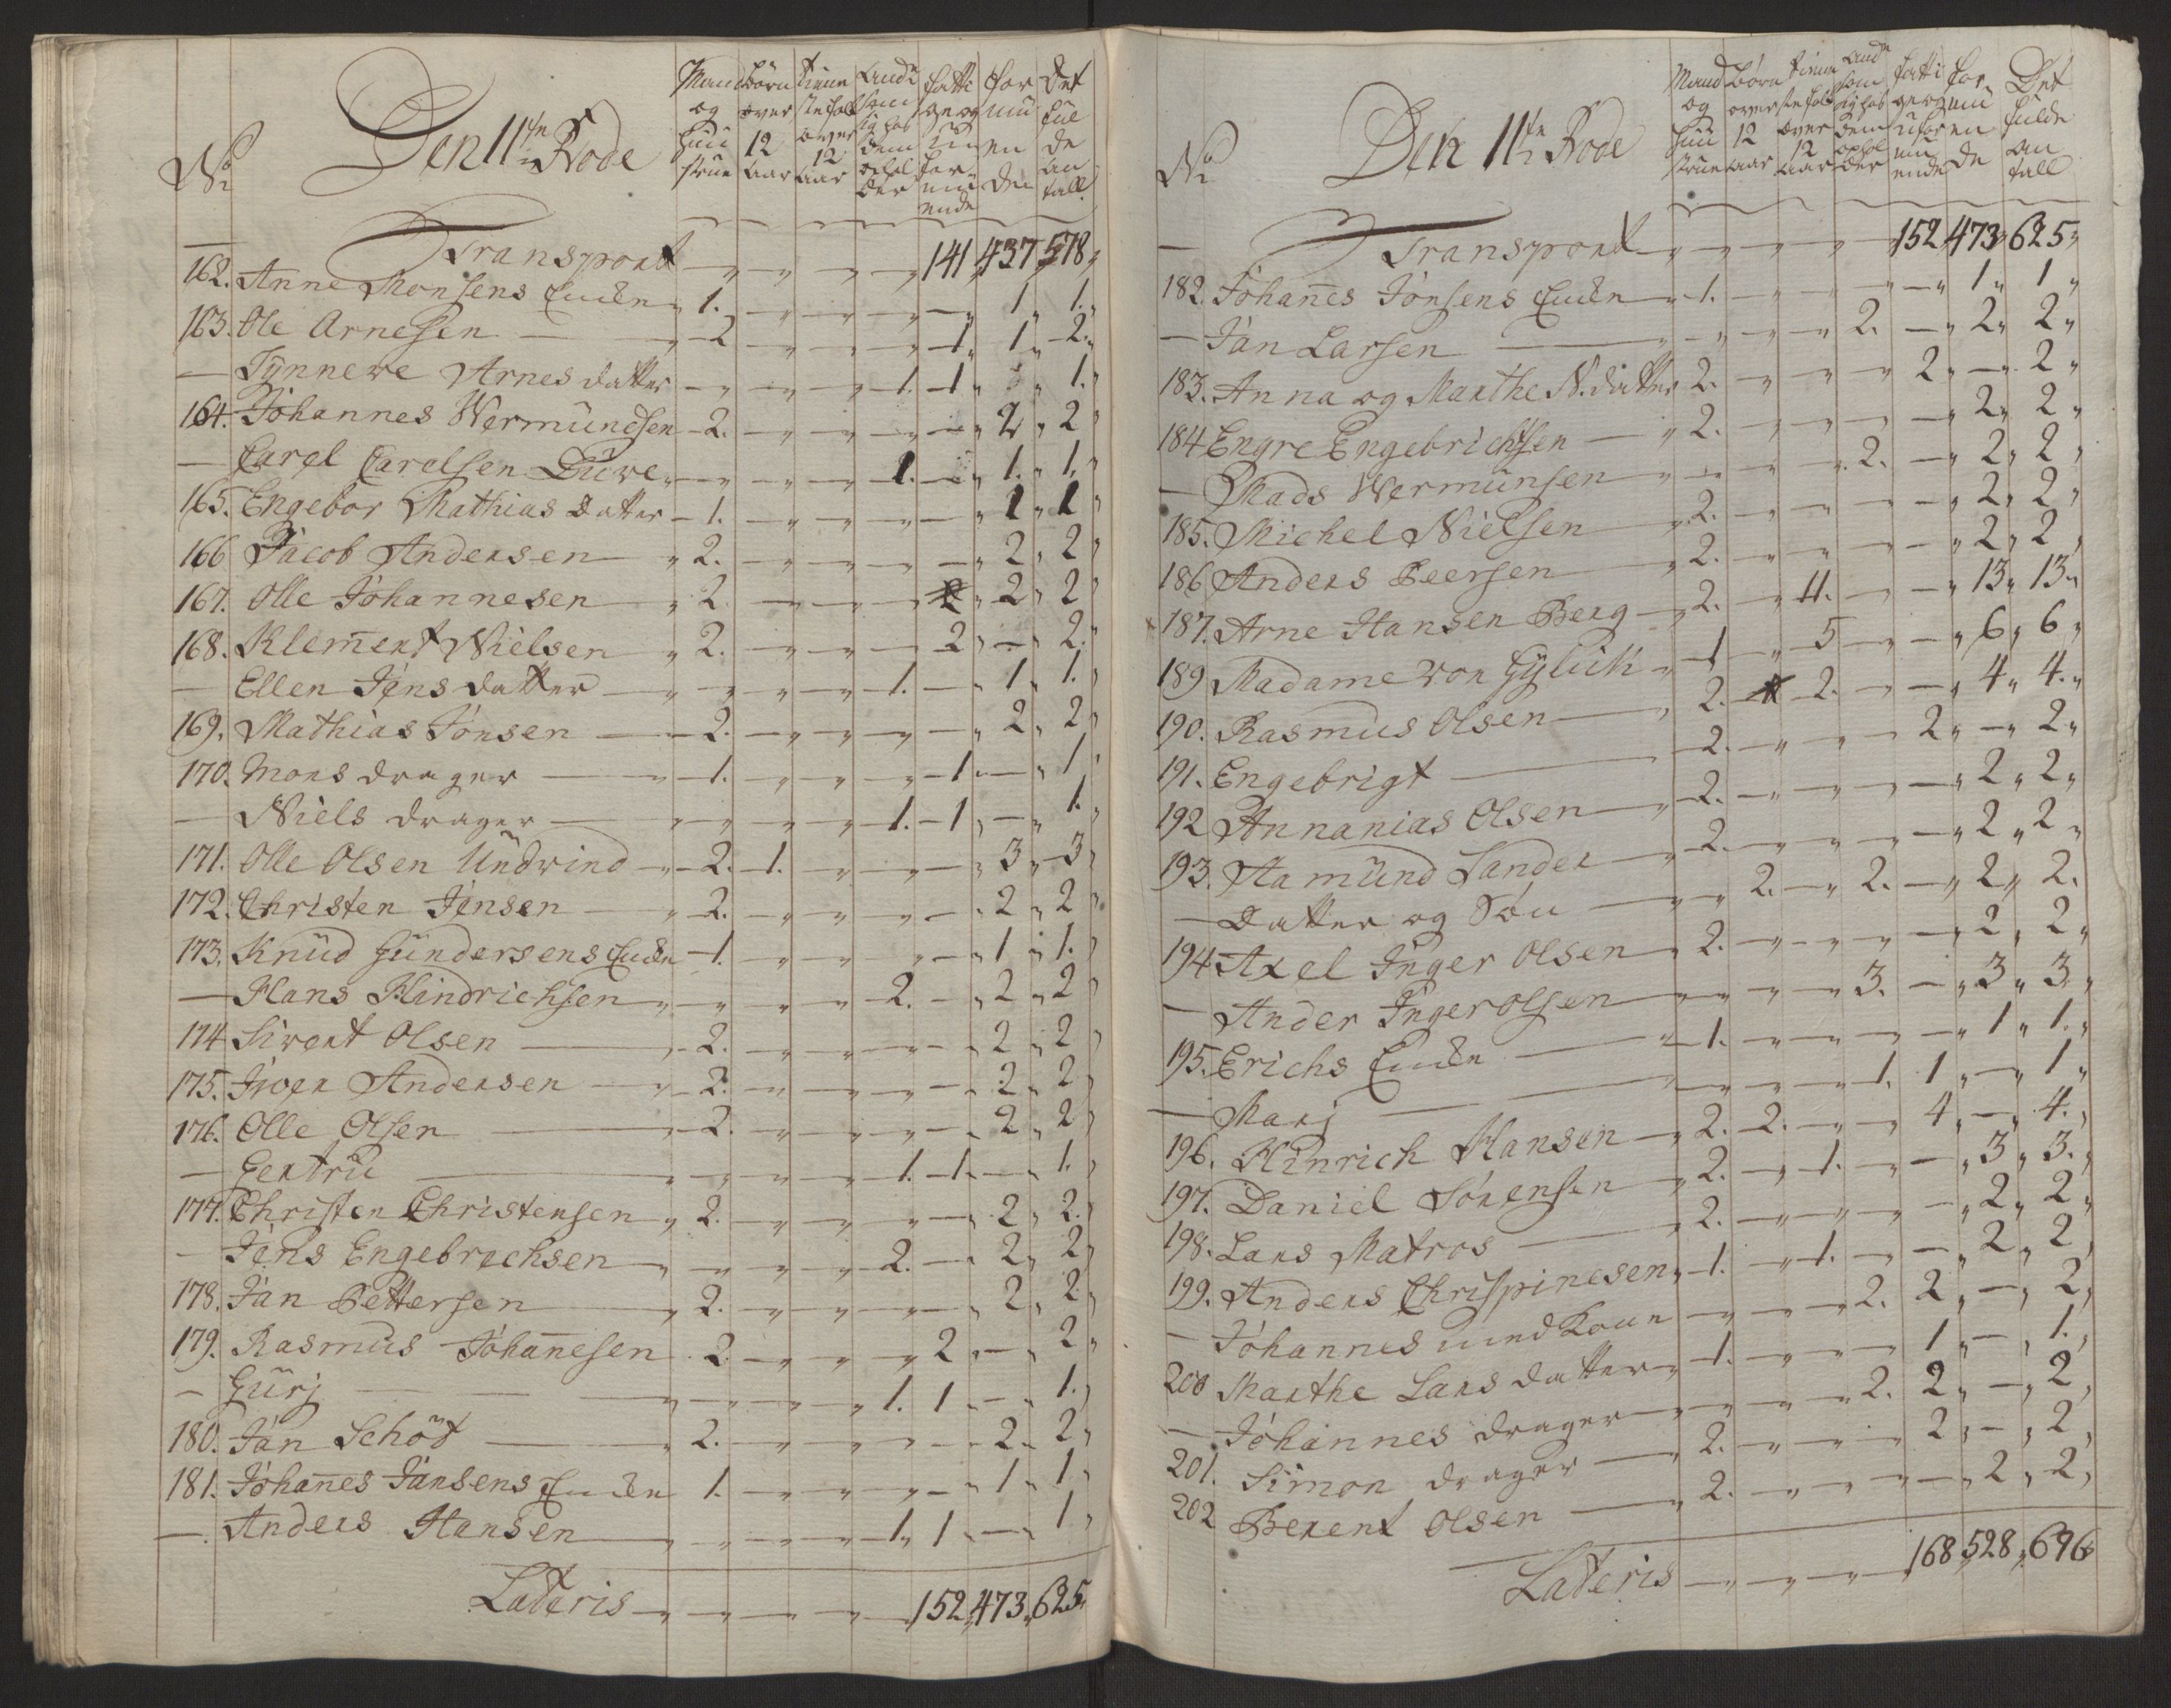 No
Den 11te Rode
Mand og Huustrue
Børn over 12 aar
tienniste folk over 12 aar
Andre som sig hos dem ophol der
fatti ge og uformu ende
for mu en de
Det ful de an tall
Transport — „ — „ — „ — „ 141 „ 437 „ 578 „
162. Anne Monsens Enken „ 1. — „ — „ — „ — „ 1 „ 1. „
163. Ole Arnesen — 2 — „ — „ — „ 1 „ 1 „ 2. „
— Tynnere Arnes datter — „ — „ — „ 1. 1 „ „ 1. „
164. Johannes Wermundsen 2. — „ — „ — „ — „ 2 „ 2 „
— Carel Carelsen Duve „ — „ — „ — 1. — „ 1. „ 1. „
165. Engebor Mathias datter — 1. — „ — „ — „ — „ 1 „ 1 „
166 Jacob Andersen — „ 2. — „ — „ — „ — „ 2 „ 2 „
167. Olle Johannesen — „ 2. — „ — „ — „ — 2 „ 2 „
168. Klement Nielsen — „ 2. — „ — „ — 2 „ — „ 2. „
— Ellen Jens datter — „ — „ — „ — 1. — „ 1 „ 1. „
169. Mathias Jonsen — 2. — „ — „ — „ — „ 2 „ 2 „
170. Mons drager — 1. — „ — „ — „ 1 „ — „ 1 „
— Niels drager — „ — „ — „ — 1. 1 „ — „ 1. „
171. Olle Olsen Undvind — 2. 1. — „ — „ — „ 3 „ 3 „
172. Christen Jensen — „ 2. — „ — „ — „ — „ 2 „ 2 „
173. Knud Gundersens Enken 1. — „ — „ — „ — „ 1 „ 1. „
— Hans Hindrichsen „ — „ — „ — „ 2. — „ 2 „ 2 „
174 Sivert Olsen — 2. — „ — „ — „ — „ 2 „ 2 „
175. Iver Andersen — 2. — „ — „ — „ — „ 2 „ 2 „
176. Olle Olsen — 2. — „ — „ — „ — „ 2 „ 2 „
— Gertru — „ — „ — „ — 1. 1. — „ 1. „
177. Christen Christensen „ 2. — „ — „ — „ — „ 2 „ 2. „
— Jens Engebrechsen „ — „ — „ — „ 2. — „ 2 „ 2 „
178. Jan Pettersen — „ 2. — „ — „ — „ — „ 2 „ 2 „
179. Rasmus Johanesen 2. — „ — „ — „ 2 „ — „ 2 „
— Gurj — „ — „ — „ — „ 1. 1 „ — „ 1. „
180. Jan Schöt — „ 2. — „ — „ — „ — „ 2 „ 2 „
181. Johanes Jansens Enken 1. — „ — „ — „ — „ 1 „ 1 „
— Anders Hansen — „ — „ — „ — 1. 1 „ — „ 1 „
Lateris — „ — „ — „ — „ 152 „ 473 „ 625 „
No
Den 11te Rode
Mand og Huu strue
Børn over 12 aar
tienniste folk over 12 aar
And som sig hos dem ophol der
fatti ge og ufor mu ende
for mu en de
Det fulde an tall
Transport — „ — „ — „ — „ 152 „ 473 „ 625 „
182. Johanes Jonsens Enken „ 1. — „ — „ — „ — „ 1 „ 1 „
— Jan Larsen — „ — „ — „ 2. — „ 2 „ 2 „
183. Anna og Marthe N. datter 2. — „ — „ — „ 2 „ — „ 2 „
184 Engre Engebrichtsen — „ 2. — „ — „ — „ — „ 2 „ 2 „
— Mads Wermunsen — „ — „ — „ 2. — „ 2 „ 2 „
185. Michel Nielsen — „ 2. — „ — „ — „ — „ 2 „ 2 „
186 Anders Peersen — „ 2. — „ — „ — „ — „ 2 „ 2 „
187. Arne Hansen Berg — „ 2. — „ 11. — „ — „ 13 „ 13 „
189 Madame von Gyluk „ 1 — „ 5 — „ — „ 6 „ 6 „
190. Rasmus Olsen — „ 2. — 2. — „ — „ 4 „ 4. „
191. Engebrigt — 2. — „ — „ — „ 2 „ — „ 2 „
192 Annanias Olsen — „ 2. — „ — „ — „ — „ 2 „ 2 „
193. Hamund Sander — „ 2. — „ — „ — „ — „ 2 „ 2 „
— Datter og Søn — „ 2. — „ 2. — „ 2 „ 2.
194 Axel Inger Olsen — „ 2. — „ — „ — „ — „ 2 „ 2 „
— Ander Ingerolsen — „ — „ — „ 3. — „ 3 „ 3 „
195. Erichs Enken — „ 1. — „ — „ — „ — „ 1 „ 1. „
— Marj — „ — „ — „ — 1. 1 „ — „ 1 „
196. Hinrich Hansen — „ 2. 2. — „ — „ 4 „ — „ 4. „
197. Daniel Sörensen — „ 2. — „ 1. — „ — „ 3 „ 3. „
198. Lars Matros — „ 2. — „ — „ — „ — „ 2 „ 2 „
199. Anders Chrispinesen „ 1. — „ 1. — „ — „ 2 „ 2 „
— Johannes med Kone — „ — „ — „ 2. 2 „ — „ 2 „
200 Marthe Lars datter „ 1. — „ — „ — „ 1 „ — „ 1. „
— Johannes drager — „ — „ — „ 2. 2 „ — „ 2 „
201. Simon drager — 2. — „ — „ — „ 2 „ — „ 2 „
202 Berent Olsen — „ 2. — „ — „ — „ — „ 2 „ 2 „
Lateris — „ — „ — „ — „ 168 „ 528 „ 696 „